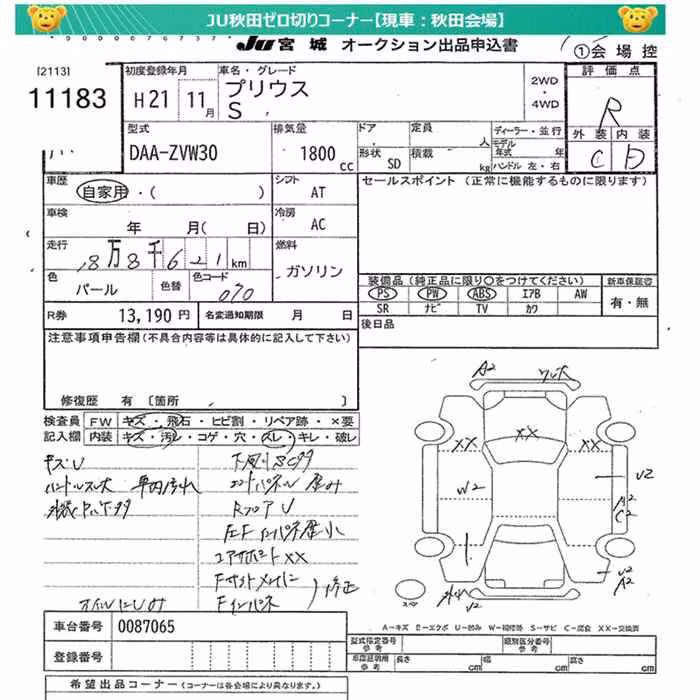 JU秋田ゼロ切りコーナー【現車：秋田会場】
JU 宮城 オークション出品申込書
①会場控
[2113]
11183
初度登録年月
H21 11月
車名・グレード
プリウス
S
2WD
・
4WD
評価点
R
外装 内装
C D
型式
DAA-ZVW30
排気量
1800 cc
ドア
形状 SD
定員 人
積載 kg
ディーラー・並行
モデル年式 年
ハンドル 左・右
車歴
自家用・( )
シフト
AT
セールスポイント (正常に機能するものに限ります)
車検
年 月( 日)
冷房
AC
走行
8万8千621km
燃料
ガソリン
色
パール
色替
色コード
070
装備品 (純正品に限り○をつけてください)
新車保証書
PS PW ABS エアB AW
有・無
SR ナビ TV カワ
R券 13,190 円
名変通知期限 月 日
後日品
注意事項申告欄 (不具合内容等は具体的に記入して下さい)
修復歴 有 [箇所 ]
検査員記入欄
FW キズ・飛石・ヒビ割・リペア跡・×要
内装 キズ・汚レ・コゲ・穴・スレ・キレ・破レ
キズU
ハンドルスレ大
RフロアU
コアサポートXX
Fインパネ
修正
A2
XX XX XX
W2
U2
A2
C2
U2
A2
U2
スペア
A－キズ E－エクボ U－凹み W－補修跡 S－サビ C－腐食 XX－交換済
車台番号 0087065
登録番号
型式指定番号 参考
類別区分番号 参考
車庫証明用 参考
長さ cm
幅 cm
高さ cm
希望出品コーナー (コーナーは各会場により異なります。)